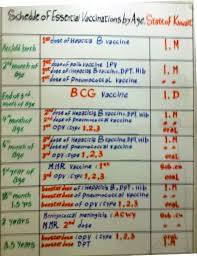 Schedule of Essential Vaccinations by Age, State of Kuwait
1st dose of Hepatitis B vaccine I.M
2nd month of Age
1st dose of polio vaccine IPV
dose of Hepatitis B vaccine, DPT, Hib I.M
dose of Pneumococcal vaccine
End of 3rd month of Age BCG Vaccine I.D
4th month of Age
dose of Hepatitis B vaccine, DPT, Hib I.M
dose of Pneumococcal vaccine
1st OPV type 1,2,3 oral
month of Age
dose of Hepatitis B vaccine, DPT, Hib
dose of Pneumococcal vaccine
OPV type 1,2,3 oral
1st year of Age
MMR Vaccine 1st
OPV type 1,2,3 oral
18th month
1.5 yrs
booster dose of Hepatitis B, DPT, Hib I.M
booster dose of Pneumococcal vaccine
booster dose OPV type 1,2,3 oral
2 years
Meningococcal meningitis: ACWY
MMR 2nd dose
3.5 years
booster dose OPV type 1,2,3 oral
booster dose DPT I.M